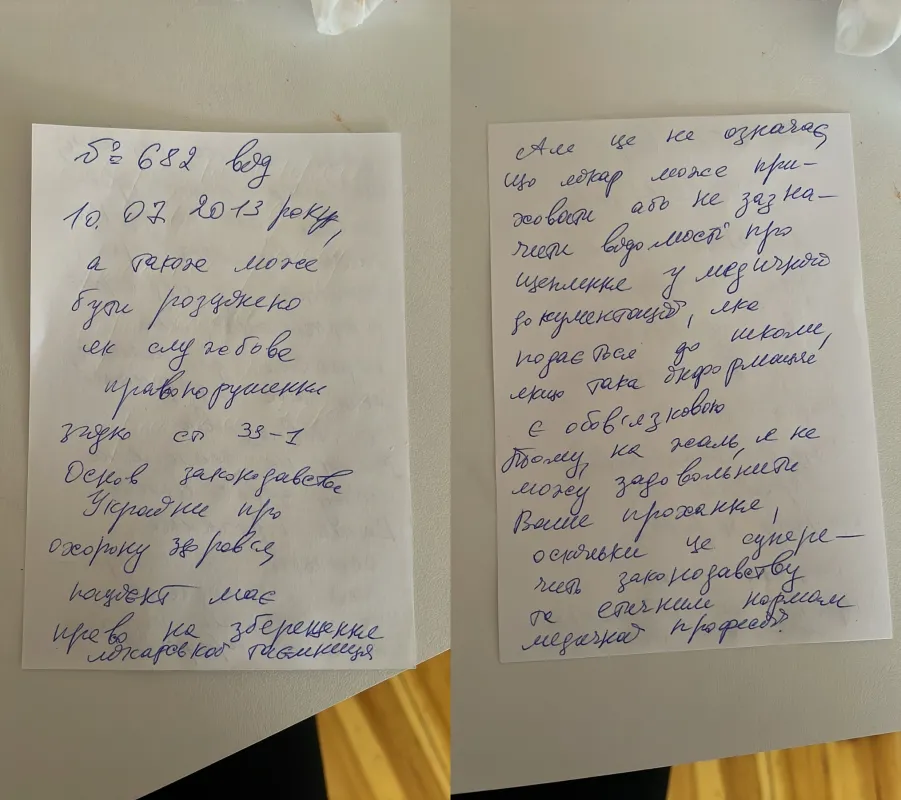 № 682 від
10.07 2013 року,
а також може
бути розцінено
як службове
правопорушення
згідно ст 39-1
Основ законодавства
України про
охорону здоров'я
пацієнт має
право на збереження
лікарської таємниця
Але це не означає,
що лікар може при-
ховати або не зазна-
чити відомості про
щеплення у медичного
документації, яка
подається до школи,
якщо така інформація
є обов'язковою
Тому, на жаль, я не
можу задовольнити
Ваше прохання,
оскільки це супере-
чить законодавству
та етичним нормам
медичної професії.